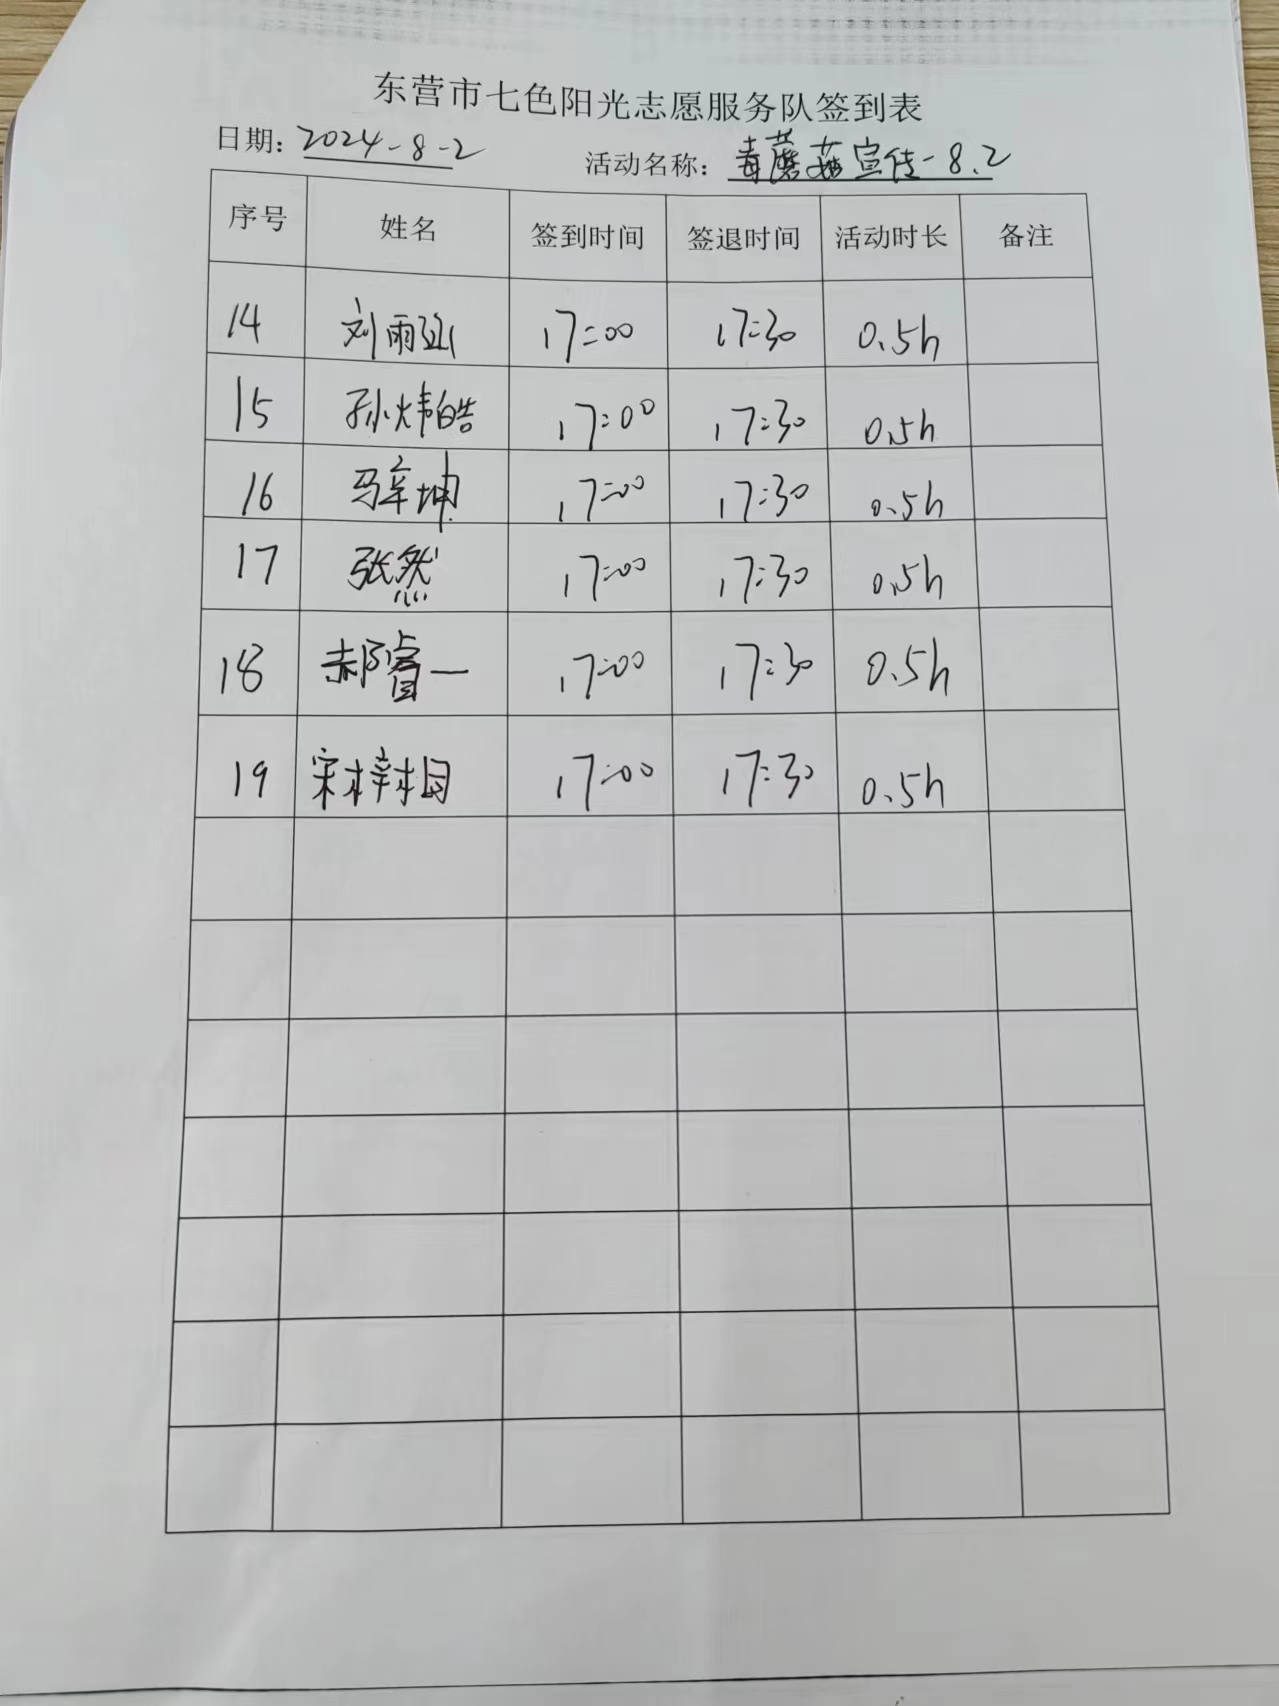 东营市七色阳光志愿服务队签到表
日期：2024-8-2 活动名称：毒蘑菇宣传-8.2
序号 姓名 签到时间 签退时间 活动时长 备注
14 刘雨涵 17:00 17:30 0.5h
15 孙炜皓 17:00 17:30 0.5h
16 马辛坤 17:00 17:30 0.5h
17 张然 17:00 17:30 0.5h
18 郝睿一 17:00 17:30 0.5h
19 宋梓桐 17:00 17:30 0.5h